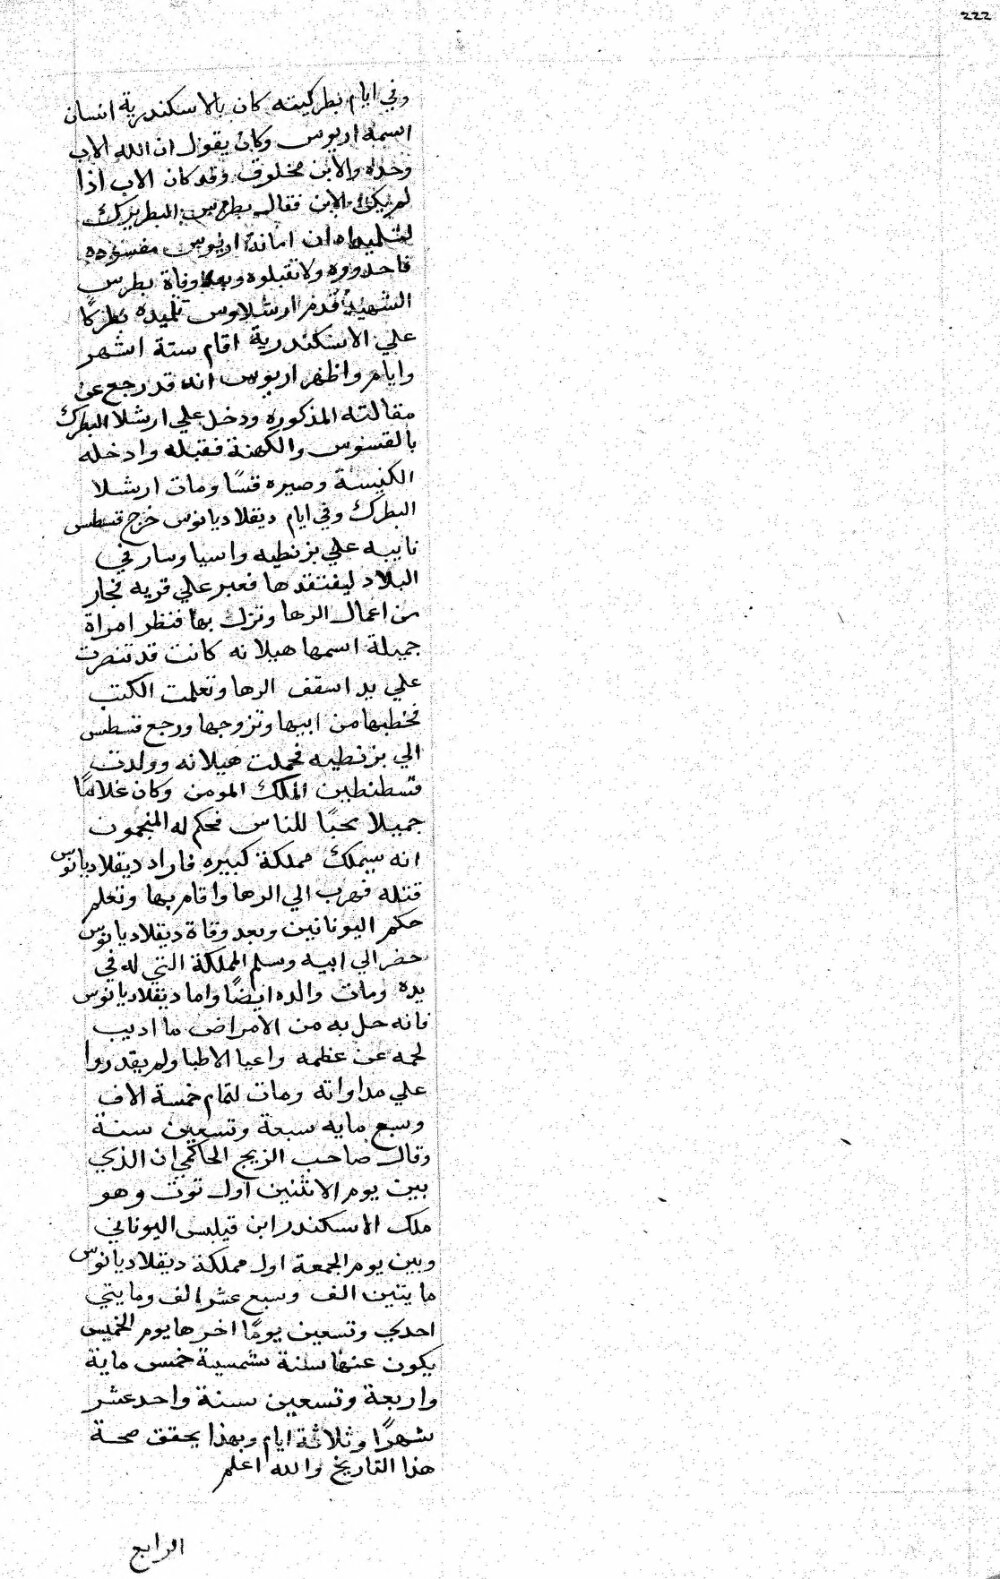 222
وفي ايام بطركيته كان بالاسكندرية انسان
اسمه اريوس وكان يقول ان الله الاب
وحده والابن مخلوق وقد كان الاب اذا
لم يكن الابن فقال بطرس البطريرك
لتلميذاه ان امانة اريوس مفسوده
فاحدروه ولا تقبلوه وبعد وفاة بطرس
الشهيد قدم ارشلاوس تلميده بطركا
علي الاسكندرية اقام ستة اشهر
وايام واظهر اريوس انه قد رجع عن
مقالته المذكوره ودخل علي ارشلا البطرك
بالقسوس والكهنة فقبله وادخله
الكنيسة وصيره قسًا ومات ارشلا
البطرك وفي ايام ديقلاديانوس خرج قسطس
نايبه علي بزنطيه واسيا وسار في
البلاد ليفتقدها فعبر علي قريه نجار
من اعمال الرها ونزل بها فنظر امراة
جميلة اسمها هيلانه كانت قد تنصرت
علي يد اسقف الرها وتعلمت الكتب
فخطبها من ابيها وتزوجها ورجع قسطس
الي بزنطيه فحملت هيلانه وولدت
قسطنطين الملك المومن وكان غلامًا
جميلا محبًا للناس فحكم له المنجمون
انه سيملك مملكة كبيره فاراد ديقلاديانوس
قتله فهرب الي الرها واقام بها وتعلم
حكم اليونانين وبعد وفاة ديقلاديانوس
حضر الي ابيه وسلم المملكة التي له في
يده ومات والده ايضًا واما ديقلاديانوس
فانه حل به من الامراض ما اديب
لحمه عن عظمه واعيا الاطبا ولم يقدروا
علي مداواته ومات لتمام خمسة الاف
وسبع مايه سبعة وتسعين سنة
وقال صاحب الزيج الحاكمي ان الذي
بين يوم الاثنين اول توت وهو
ملك الاسكندر ابن فيلبس اليوناني
وبين يوم الجمعة اول مملكة ديقلاديانوس
مايتين الف وسبع عشر الف ومايتي
احدي وتسعين يومًا اخرها يوم الخميس
يكون عنها سنة شمسية خمس ماية
واربعة وتسعين سنة واحد عشر
شهرًا وثلاثة ايام وبهذا يحقق صحة
هذا التاريخ والله اعلم
الرابع